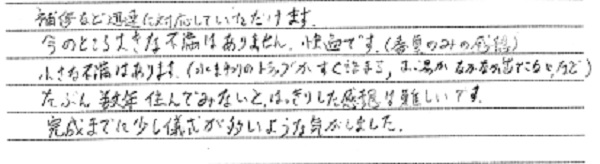 補修など迅速に対応していただけます。
今のところ大きな不満はありません。快適です。(春夏のみの感想)
小さな不満はあります。(水まわりのトラップがすぐ詰まる、お湯がなかなか出てこないなど)
たぶん数年住んでみないと、はっきりした感想は難しいです。
完成までに少し儀式が多いような気がしました。